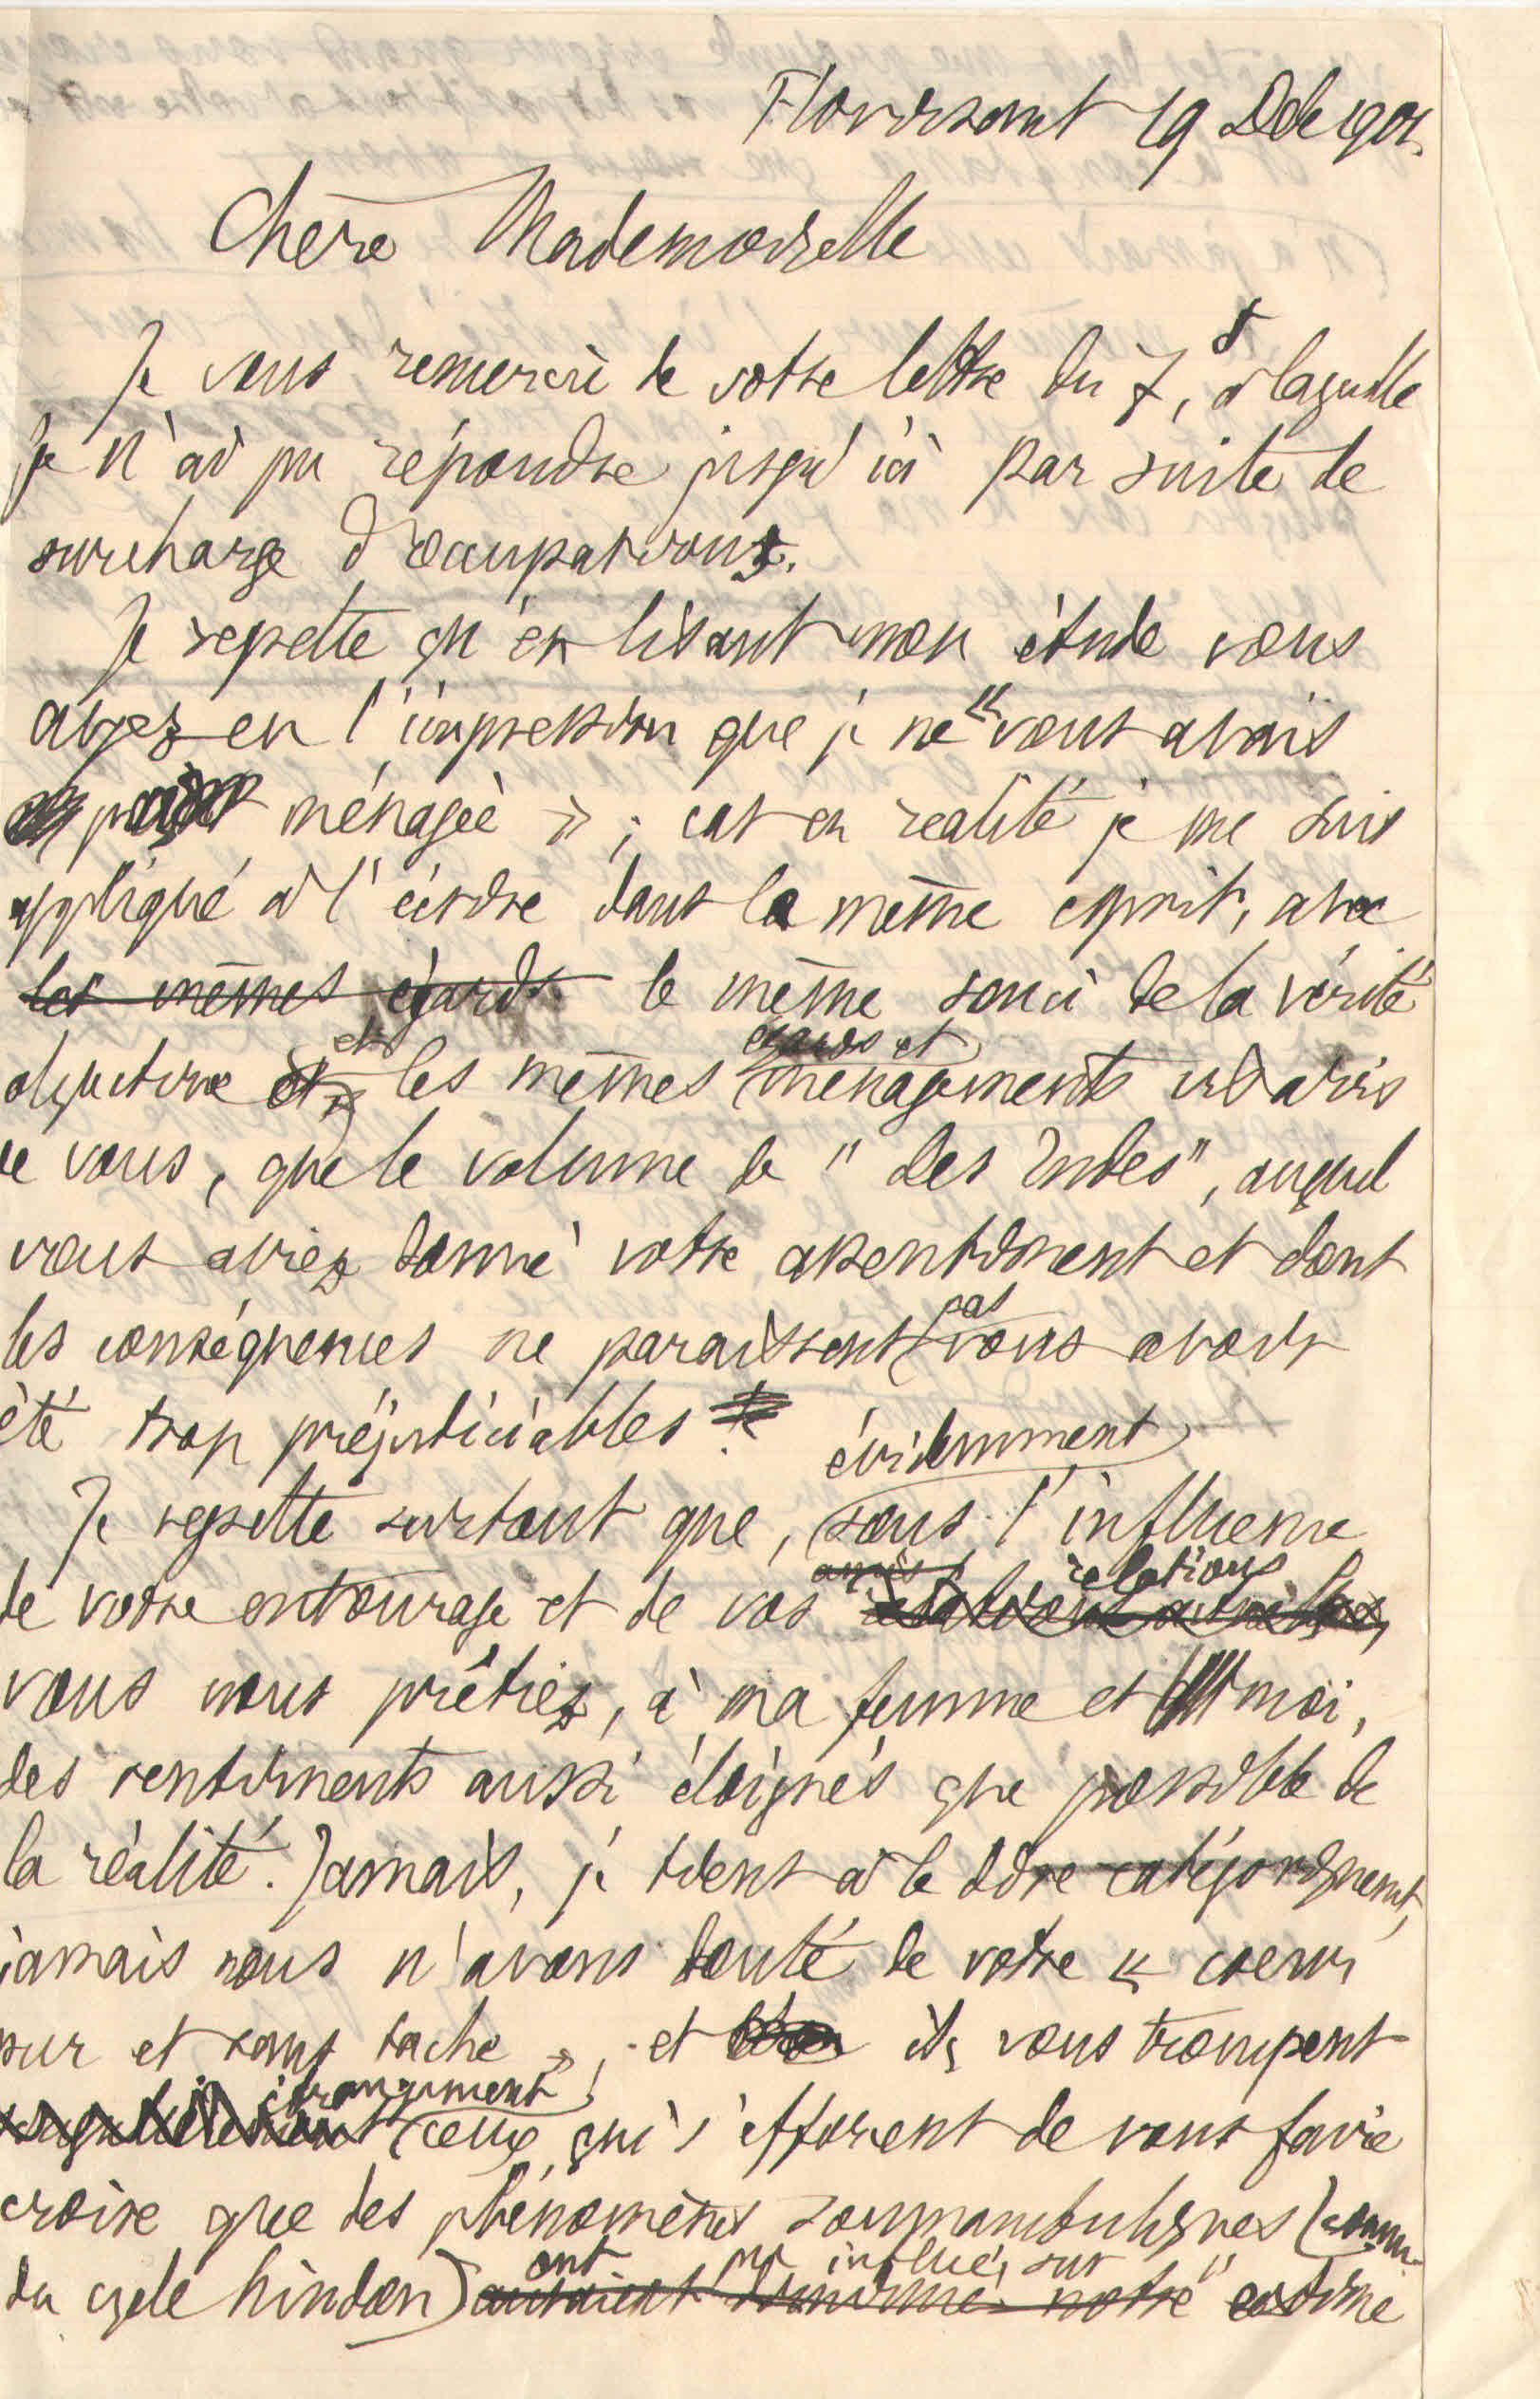 Florissant 19 Dde 1901.
Chère Mademoiselle
Je vous remercie de votre lettre du 7, à laquelle
je n'ai pu répondre jusqu'ici par suite de
surcharge d'occupations.
Je regrette qu'en lisant mon étude vous
ayez eu l'impression que je ne « vous avais
pas ménagée » ; car en réalité je me suis
appliqué à l'écrire dans le même esprit, avec
les mêmes égards le même souci de la vérité
objective et les mêmes égards et ménagements vis à vis
de vous, que le volume de "Des Indes", auquel
vous aviez donné votre assentiment et dont
les conséquences ne paraissent pas vous avoir
été trop préjudiciables.
Je regrette surtout que, évidemment sous l'influence
de votre entourage et de vos amis relations
vous nous prêtiez, à ma femme et moi,
des sentiments aussi éloignés que possible de
la réalité. Jamais, je tiens à le dire catégoriquement,
jamais nous n'avons douté de votre « coeur
pur et sans tache » ; et ils vous trompent
étrangement ceux qui s'efforcent de vous faire
croire que des phénomènes somnambuliques (comm.
du cycle hindou) auraient diminué notre ont pu influer sur estime